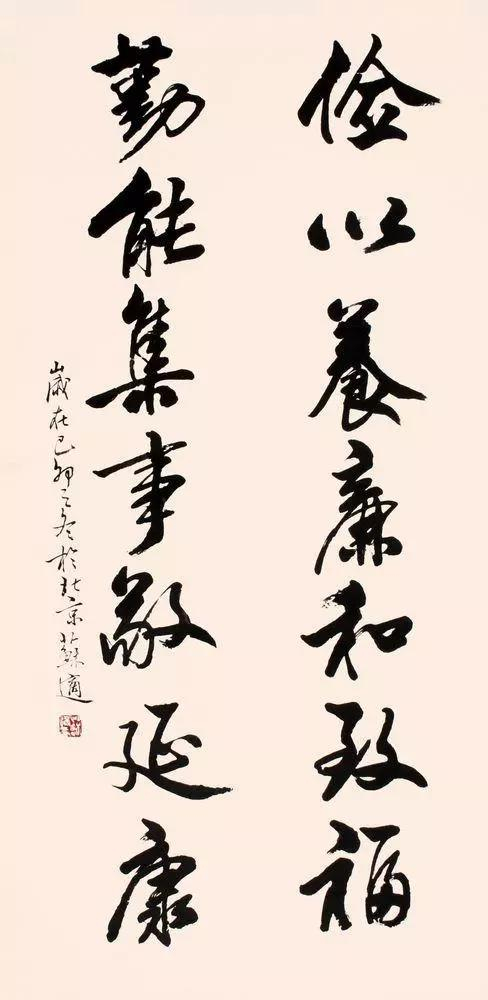 儉以養廉和致福
勤能集事敬延康
歲在己卯之冬於北京蘇適